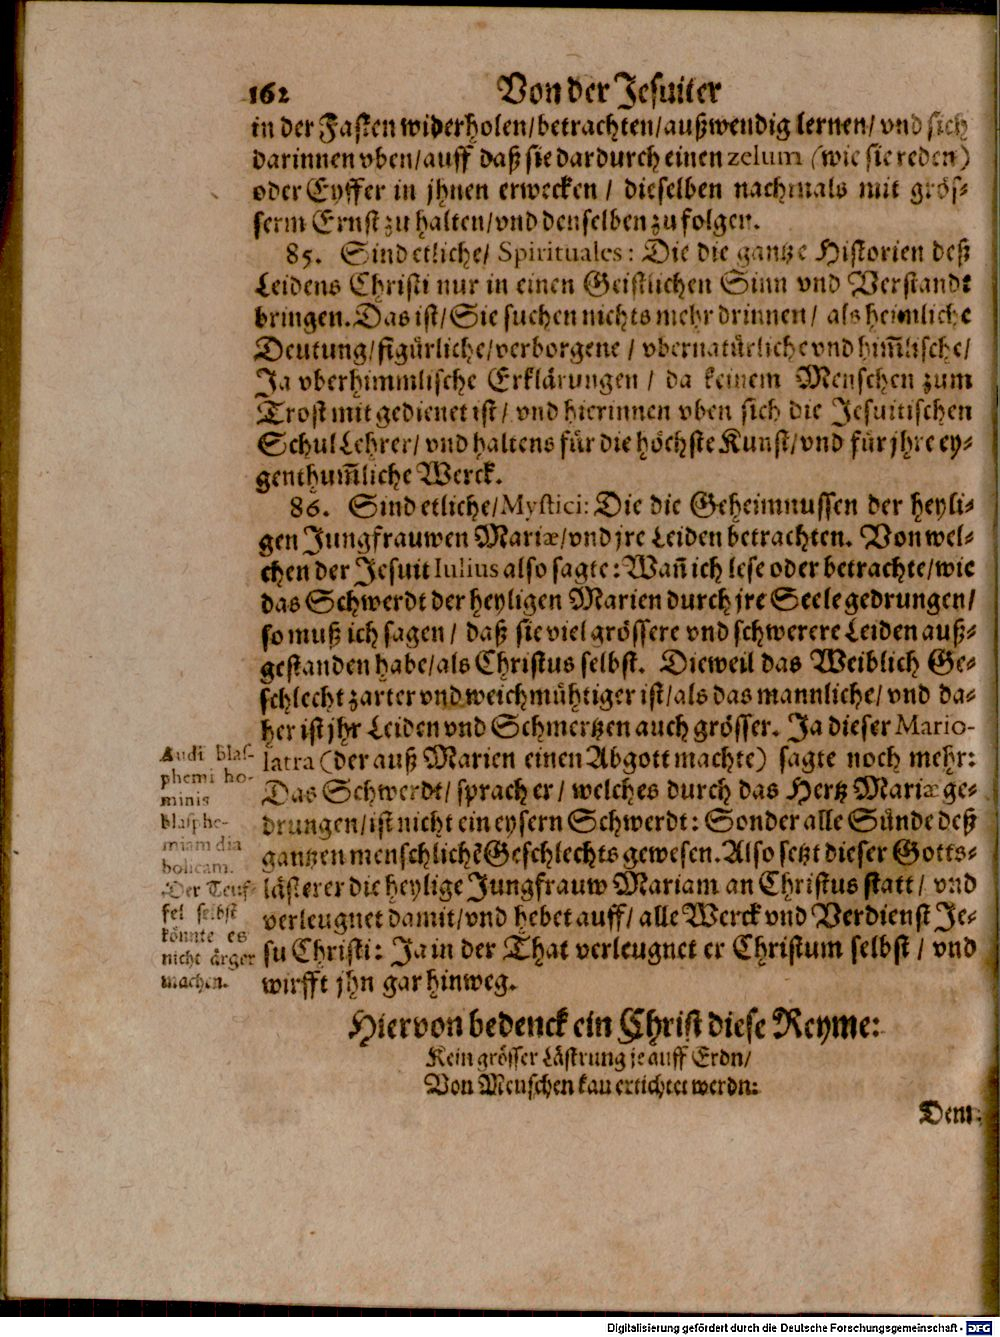 162 Von der Jesuiter
in der Fasten widerholen/betrachten/außwendig lernen/vnd sich
darinnen vben/auff daß sie dardurch einen zelum (wie sie reden)
oder Eyffer in jhnen erwecken / dieselben nachmals mit grös-
serm Ernst zu halten/vnd denselben zu folgen.
85. Sind etliche/ Spirituales: Die die gantze Historien deß
Leidens Christi nur in einen Geistlichen Sinn vnd Verstandt
bringen. Das ist/Sie suchen nichts mehr drinnen/ als heimliche
Deutung/figürliche/verborgene / vbernatürliche vnd him̃lische/
Ja vberhimmlische Erklärungen / da keinem Menschen zum
Trost mit gedienet ist/ vnd hierinnen vben sich die Jesuitischen
SchulLehrer/ vnd haltens für die höchste Kunst/vnd für jhre ey-
genthum̃liche Werck.
86. Sind etliche/Mystici: Die die Geheimnussen der heyli-
gen Jungfrauwen Mariæ/vnd jre Leiden betrachten. Von wel-
chen der Jesuit Iulius also sagte: Wañ ich lese oder betrachte/wie
das Schwerdt der heyligen Marien durch jre Seele gedrungen/
so muß ich sagen / daß sie viel grössere vnd schwerere Leiden auß-
gestanden habe/als Christus selbst. Dieweil das Weiblich Ge-
schlecht zarter vnd weichmühtiger ist/als das mannliche/ vnd da-
her ist jhr Leiden vnd Schmertzen auch grösser. Ja dieser Mario-
latra (der auß Marien einen Abgott machte) sagte noch mehr:
Das Schwerdt/ sprach er/ welches durch das Hertz Mariæ ge-
drungen/ist nicht ein eysern Schwerdt: Sonder alle Sünde deß
gantzen menschlichẽ Geschlechts gewesen. Also setzt dieser Gotts-
lästerer die heylige Jungfrauw Mariam an Christus statt/ vnd
verleugnet damit/vnd hebet auff/ alle Werck vnd Verdienst Je-
su Christi: Ja in der That verleugnet er Christum selbst / vnd
wirfft jhn gar hinweg.
Audi blas-
phemi ho-
minis
blasphe-
miam dia
bolicam.
Der Teuf-
fel selbst
könnte es
nicht ärger
machen.
Hiervon bedenck ein Christ diese Reyme:
Kein grösser Lästrung je auff Erdn/
Von Menschen kan ertichtet werdn:
Denn
Digitalisierung gefördert durch die Deutsche Forschungsgemeinschaft - DFG